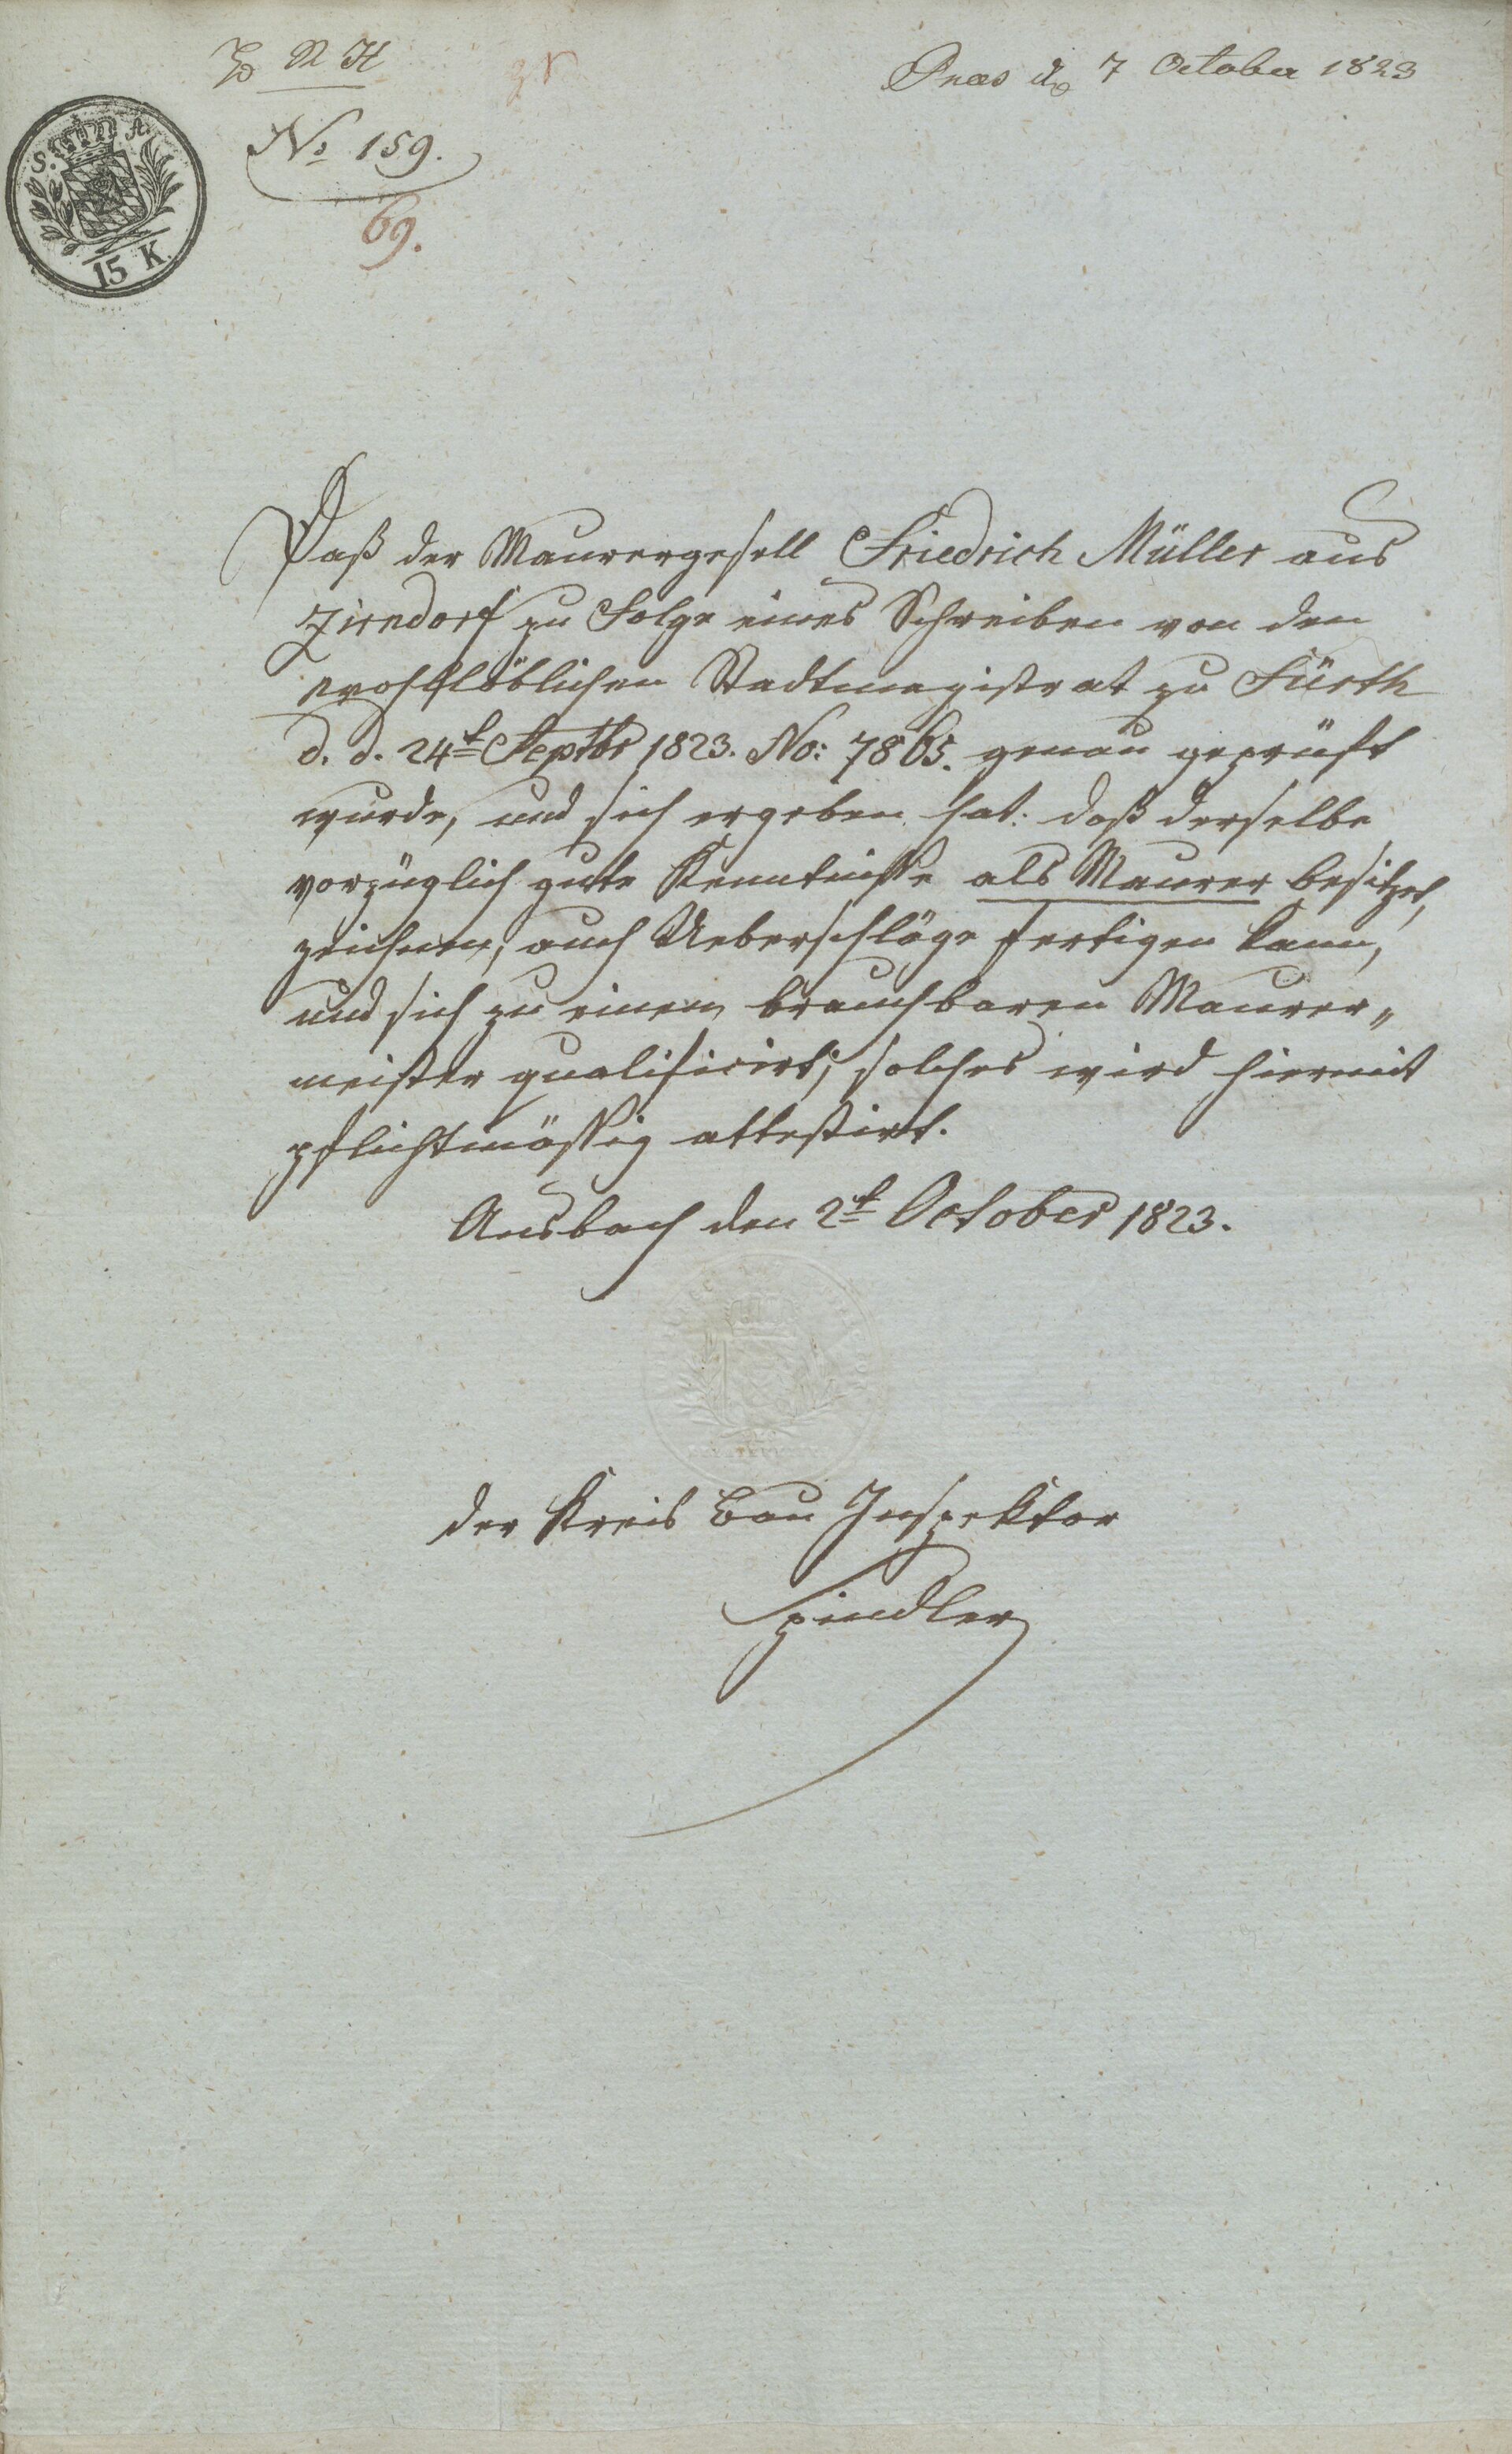 Præs d. 7 October 1823
No 159.
69.
S. A.
15 K
Daß der Maurergesell Friedrich Müller aus
Zirndorf zu Folge eines Schreiben von den
wohllöblichen Stadtmagistrat zu Fürth
d. d. 24t Septbr 1823. No: 7865. genau geprüft
wurde, und sich ergeben hat: daß derselbe
vorzüglich gute Kenntniße als Maurer besitzet,
zeichnen, auch Ueberschläge fertigen kann,
und sich zu einem brauchbaren Maurer„
meister qualificirt; solches wird hiermit
pflichtmäßig attestirt.
Ansbach den 2t October 1823.
der Kreis Bau Inspektor
Spindler